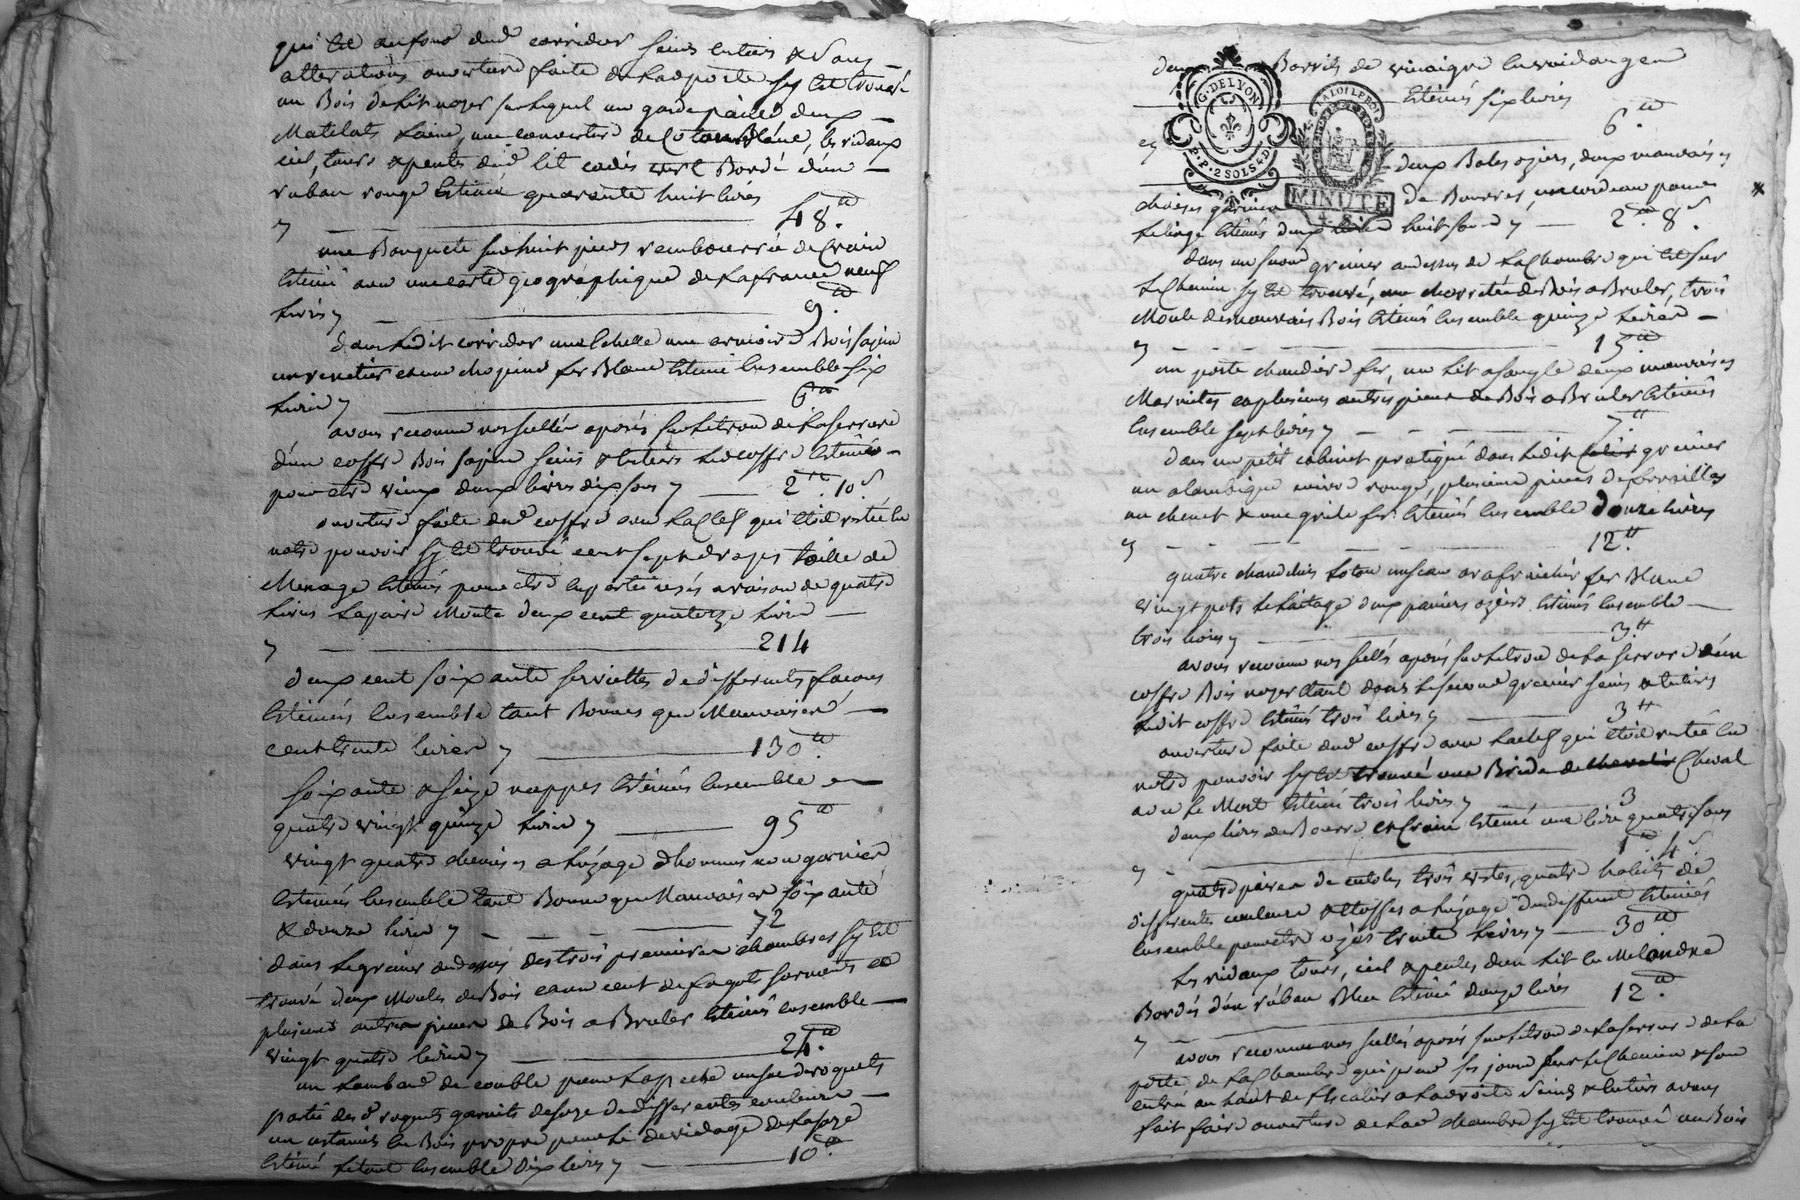 qui est au fond dud corridor sains entiers & sans
alterations ouverture faite de lad porte sy est trouvé
un Bois de lit noyer sur lequel un garde paille, deux
Matelats Laine, une couverture de Coton Blanc, les ridaux
ciel, tours & pentes dud lit cadis vert Bordé d'un
ruban rouge Estimé quarante huit livres
48.tt
une Banquete sur huit pieds rembourrée de Crain
Estimé avec une carte géographique de La france neuf
Livres 9.tt
dans Ledit corridor une Echelle une armoire Bois sapin
un et une chopine fer Blanc Estimé Ensemble six
Livres 6tt
avons reconnu nos scellés aposés sur Le trou de La serrure
d'un coffre Bois sapin sains & Entiers Led coffre Estimé
pour etre vieux deux livres dix sous 2tt. 10.s
ouverture faite dud coffre avec La Clef qui etoit restée En
notre pouvoir sy est trouvé cent sept draps toille de
Menage Estimés pour etre En partie usés a raison de quatre
Livres La paire Monte deux cent quatorze Livres
214
deux cent soixante serviettes de differentes facons
Estimées Ensemble tant Bonnes que Mauvaises
cent trente livres 130tt
soixante & seize nappes Estimées Ensemble
quatre vingt quinze Livres 95tt
vingt quatre chemises a L'uzage d'hommes non garnies
Estimées Ensemble tant Bonnes que Mauvaises soixante
& douze livres 72
dans Le grenier au dessus des trois premieres chambres sy est
trouvé deux Moules de Bois et un cent de fagots sarments et
plusieurs autres pieces de Bois a Bruler Estimés ensemble
vingt quatre livres 24.tt
un de pour La peche un sac de roquets
partie desd roquets garnits de soye de differentes couleurs
un En Bois propre pour Le devidage de La soye
Estimé Le tout Ensemble dix livres 10.tt
deux Barrils de vinaigre En vuidange
Estimés six livres
6.tt
G. DE LYON
P.P. 2 SOLS 4 D
LA LOI LE ROI
MINUTE
4. S.
deux Bales oziers, deux mauvaises
chaises garnies de Bourres, un cordeau pour
Le linge Estimés deux livres huit sous 2tt 8.s
dans un second grenier au dessus de La Chambre qui est sur
Le Chemin sy est trouvé, une charretée de Bois a Bruler, trois
Moule de mauvais Bois Estimés Ensemble quinze Livres
15.tt
un porte chaudiere fer, un Lit a sangle deux mauvaises
et plusieurs autres pieces de Bois a Bruler Estimés
Ensemble sept livres 7.tt
dans un petit cabinet pratiqué dans Ledit grenier
un alambique cuivre rouge, plusieurs pieces de ferrailles
un chenet & une grile fer Estimés Ensemble douze livres
12.tt
quatre chandeliers Loton un seau a rafraichir fer Blanc
vingt pots Le Laitage deux paniers oziers Estimés Ensemble
trois livres 3.tt
avons reconnu nos scellés aposés sur Le trou de La serrure d'un
coffre Bois noyer étant dans Le second grenier sains & Entiers
Ledit coffre Estimé trois livres 3tt
ouverture faite dud coffre avec La Clef qui etoit restée En
notre pouvoir sy est trouvé une Bride de Cheval
avec Le Mort Estimé trois livres 3
deux livres de Bourre et Crain Estimé une livre quatre sous
1tt. 4.s
quatre paires de culotes, trois vestes, quatre habits de
differentes couleurs & Etoffes a L'uzage dud deffunt Estimés
Ensemble pour etre uzés trente Livres 30.tt
Les ridaux tours, ciel & pentes d'un Lit En Melandre
Bordés d'un ruban Bleu Estimé douze livres 12.tt
avons reconnu nos scellés aposés sur Le trou de La serrure de La
porte de La Chambre qui prend ses jours sur Le Chemin & son
entrée au haut de L'Escalier a La droite sains & Entiers avons
fait faire ouverture de Lad chambre sy est trouvé un Bois